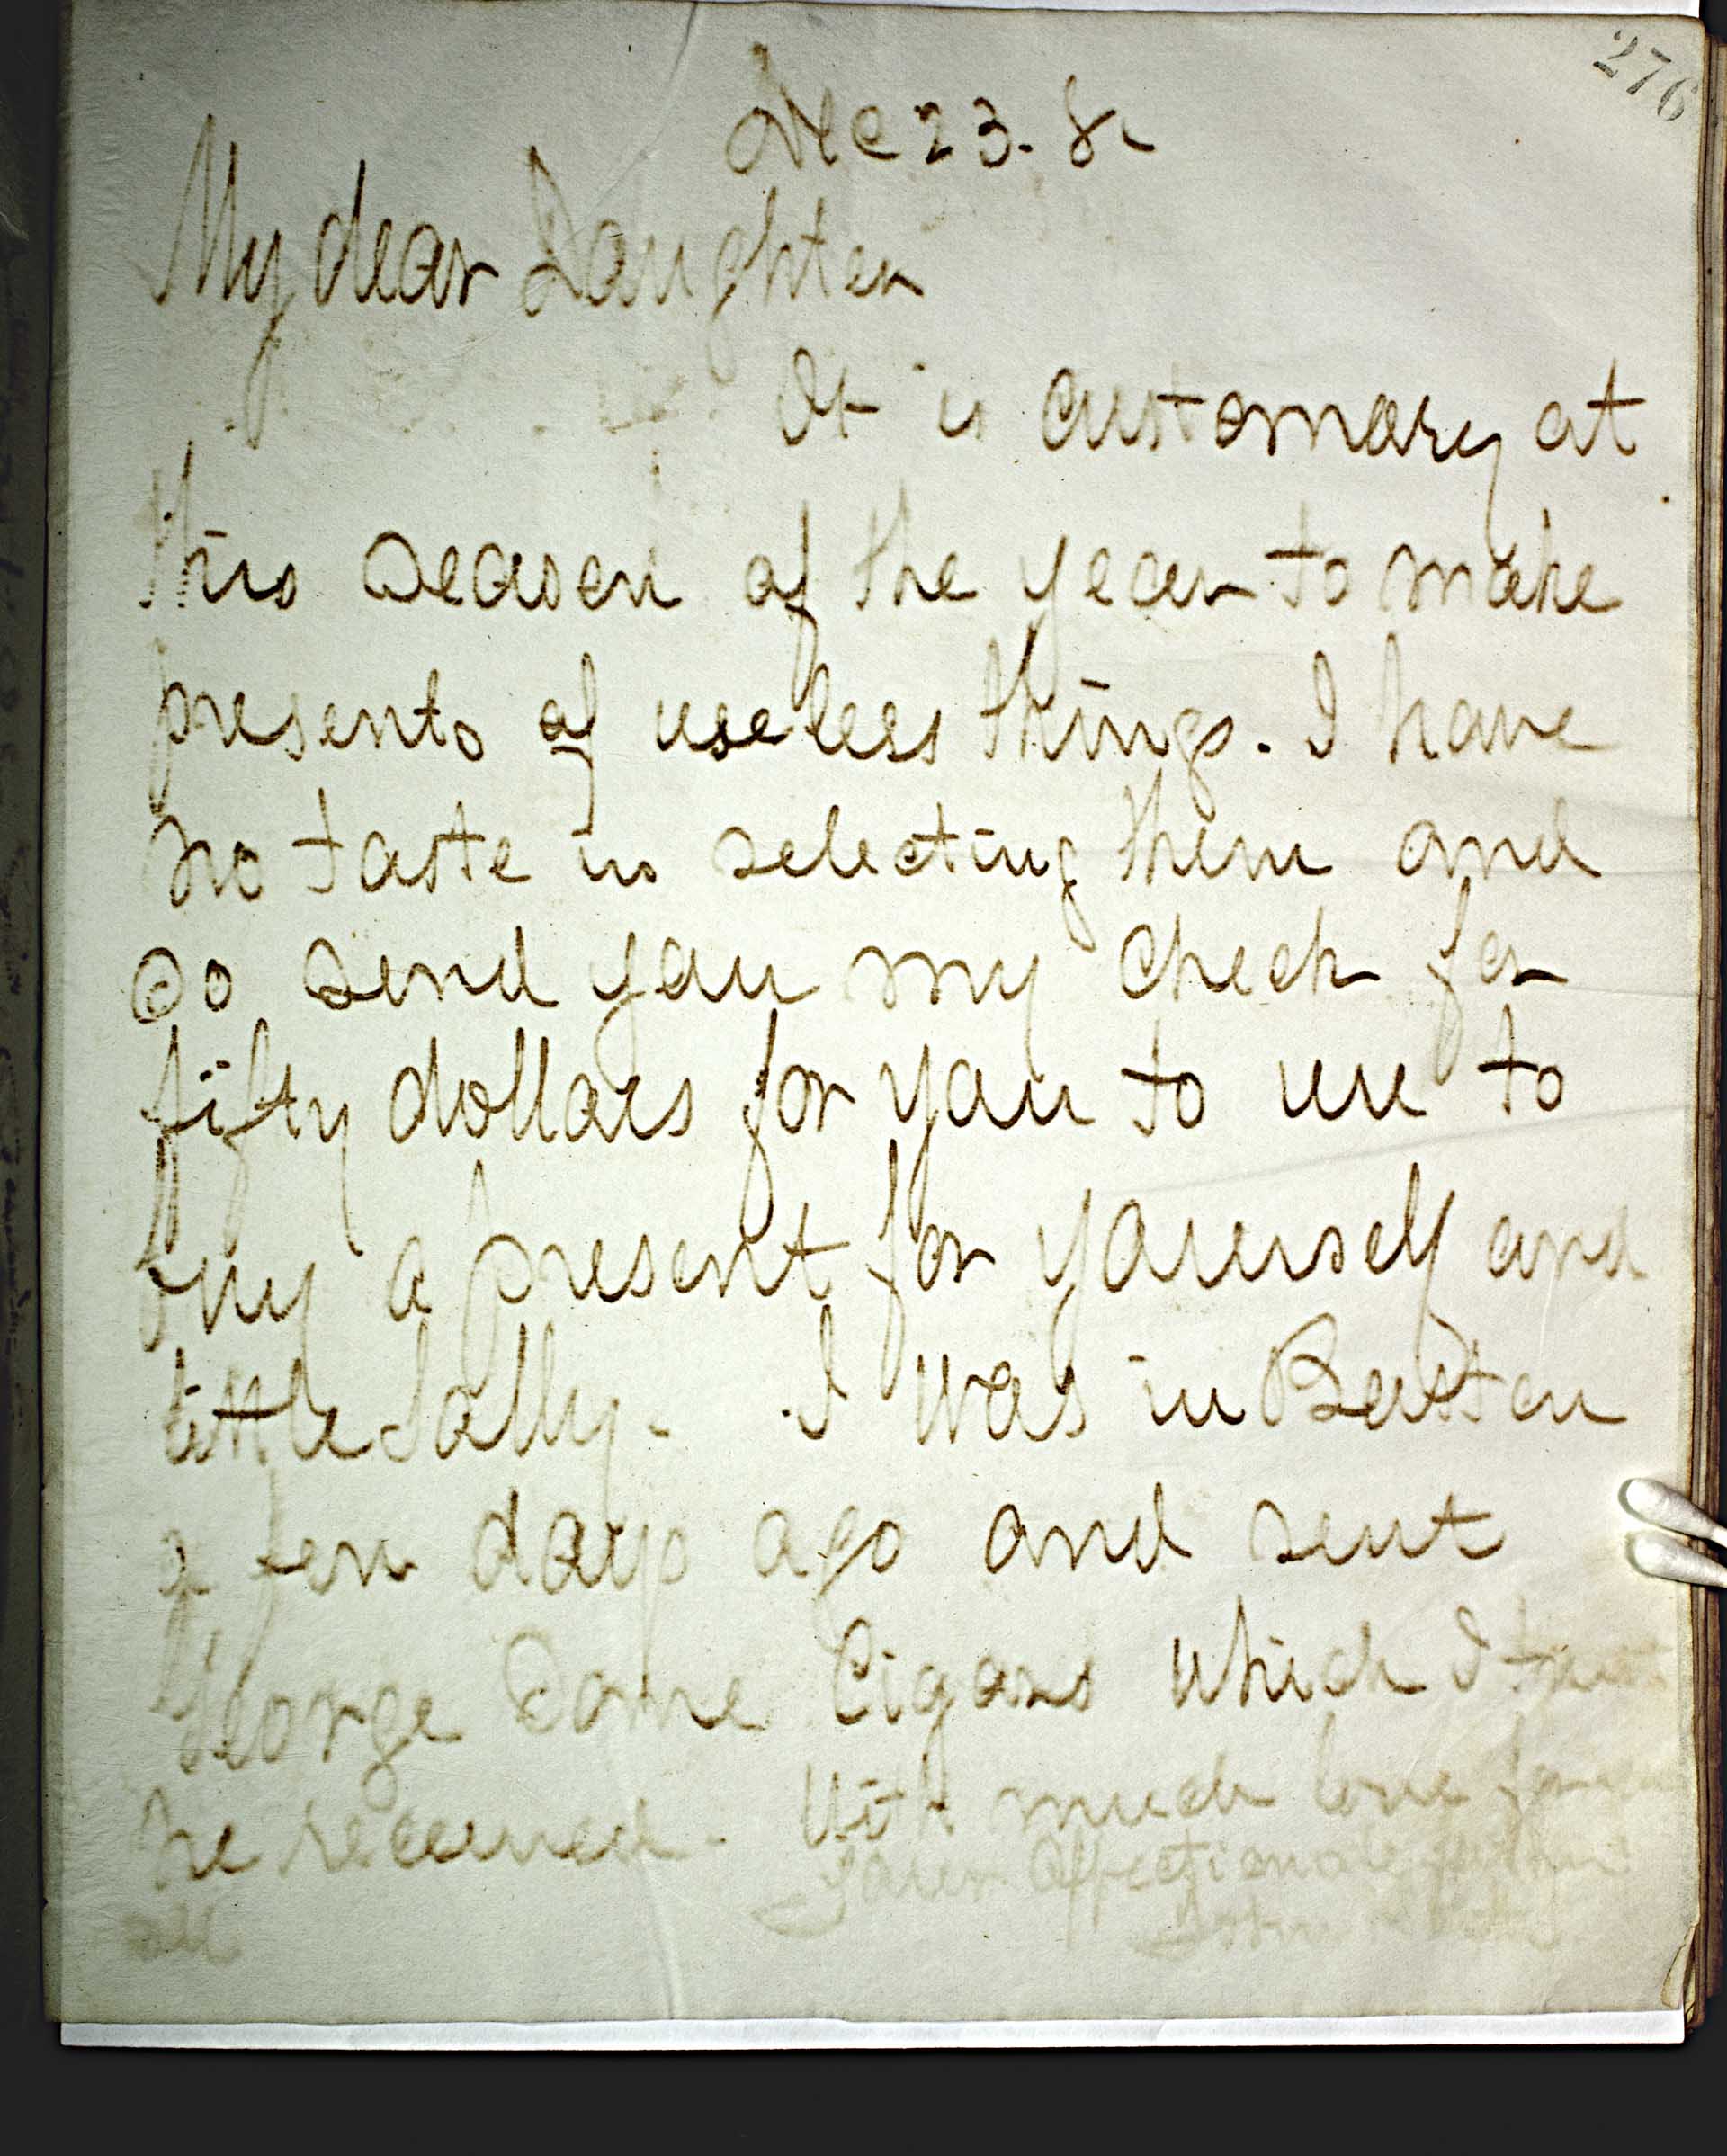 276
Dec 23. 82
My dear Daughter
It is customary at
this season of the year to make
presents of useless things. I have
no taste in selecting them and
so send you my check for
fifty dollars for you to use to
buy a present for yourself and
little Sally. I was in Boston
a few days ago and sent
George some Cigars which I trust
he received. With much love for
all
Your Affectionate father
John